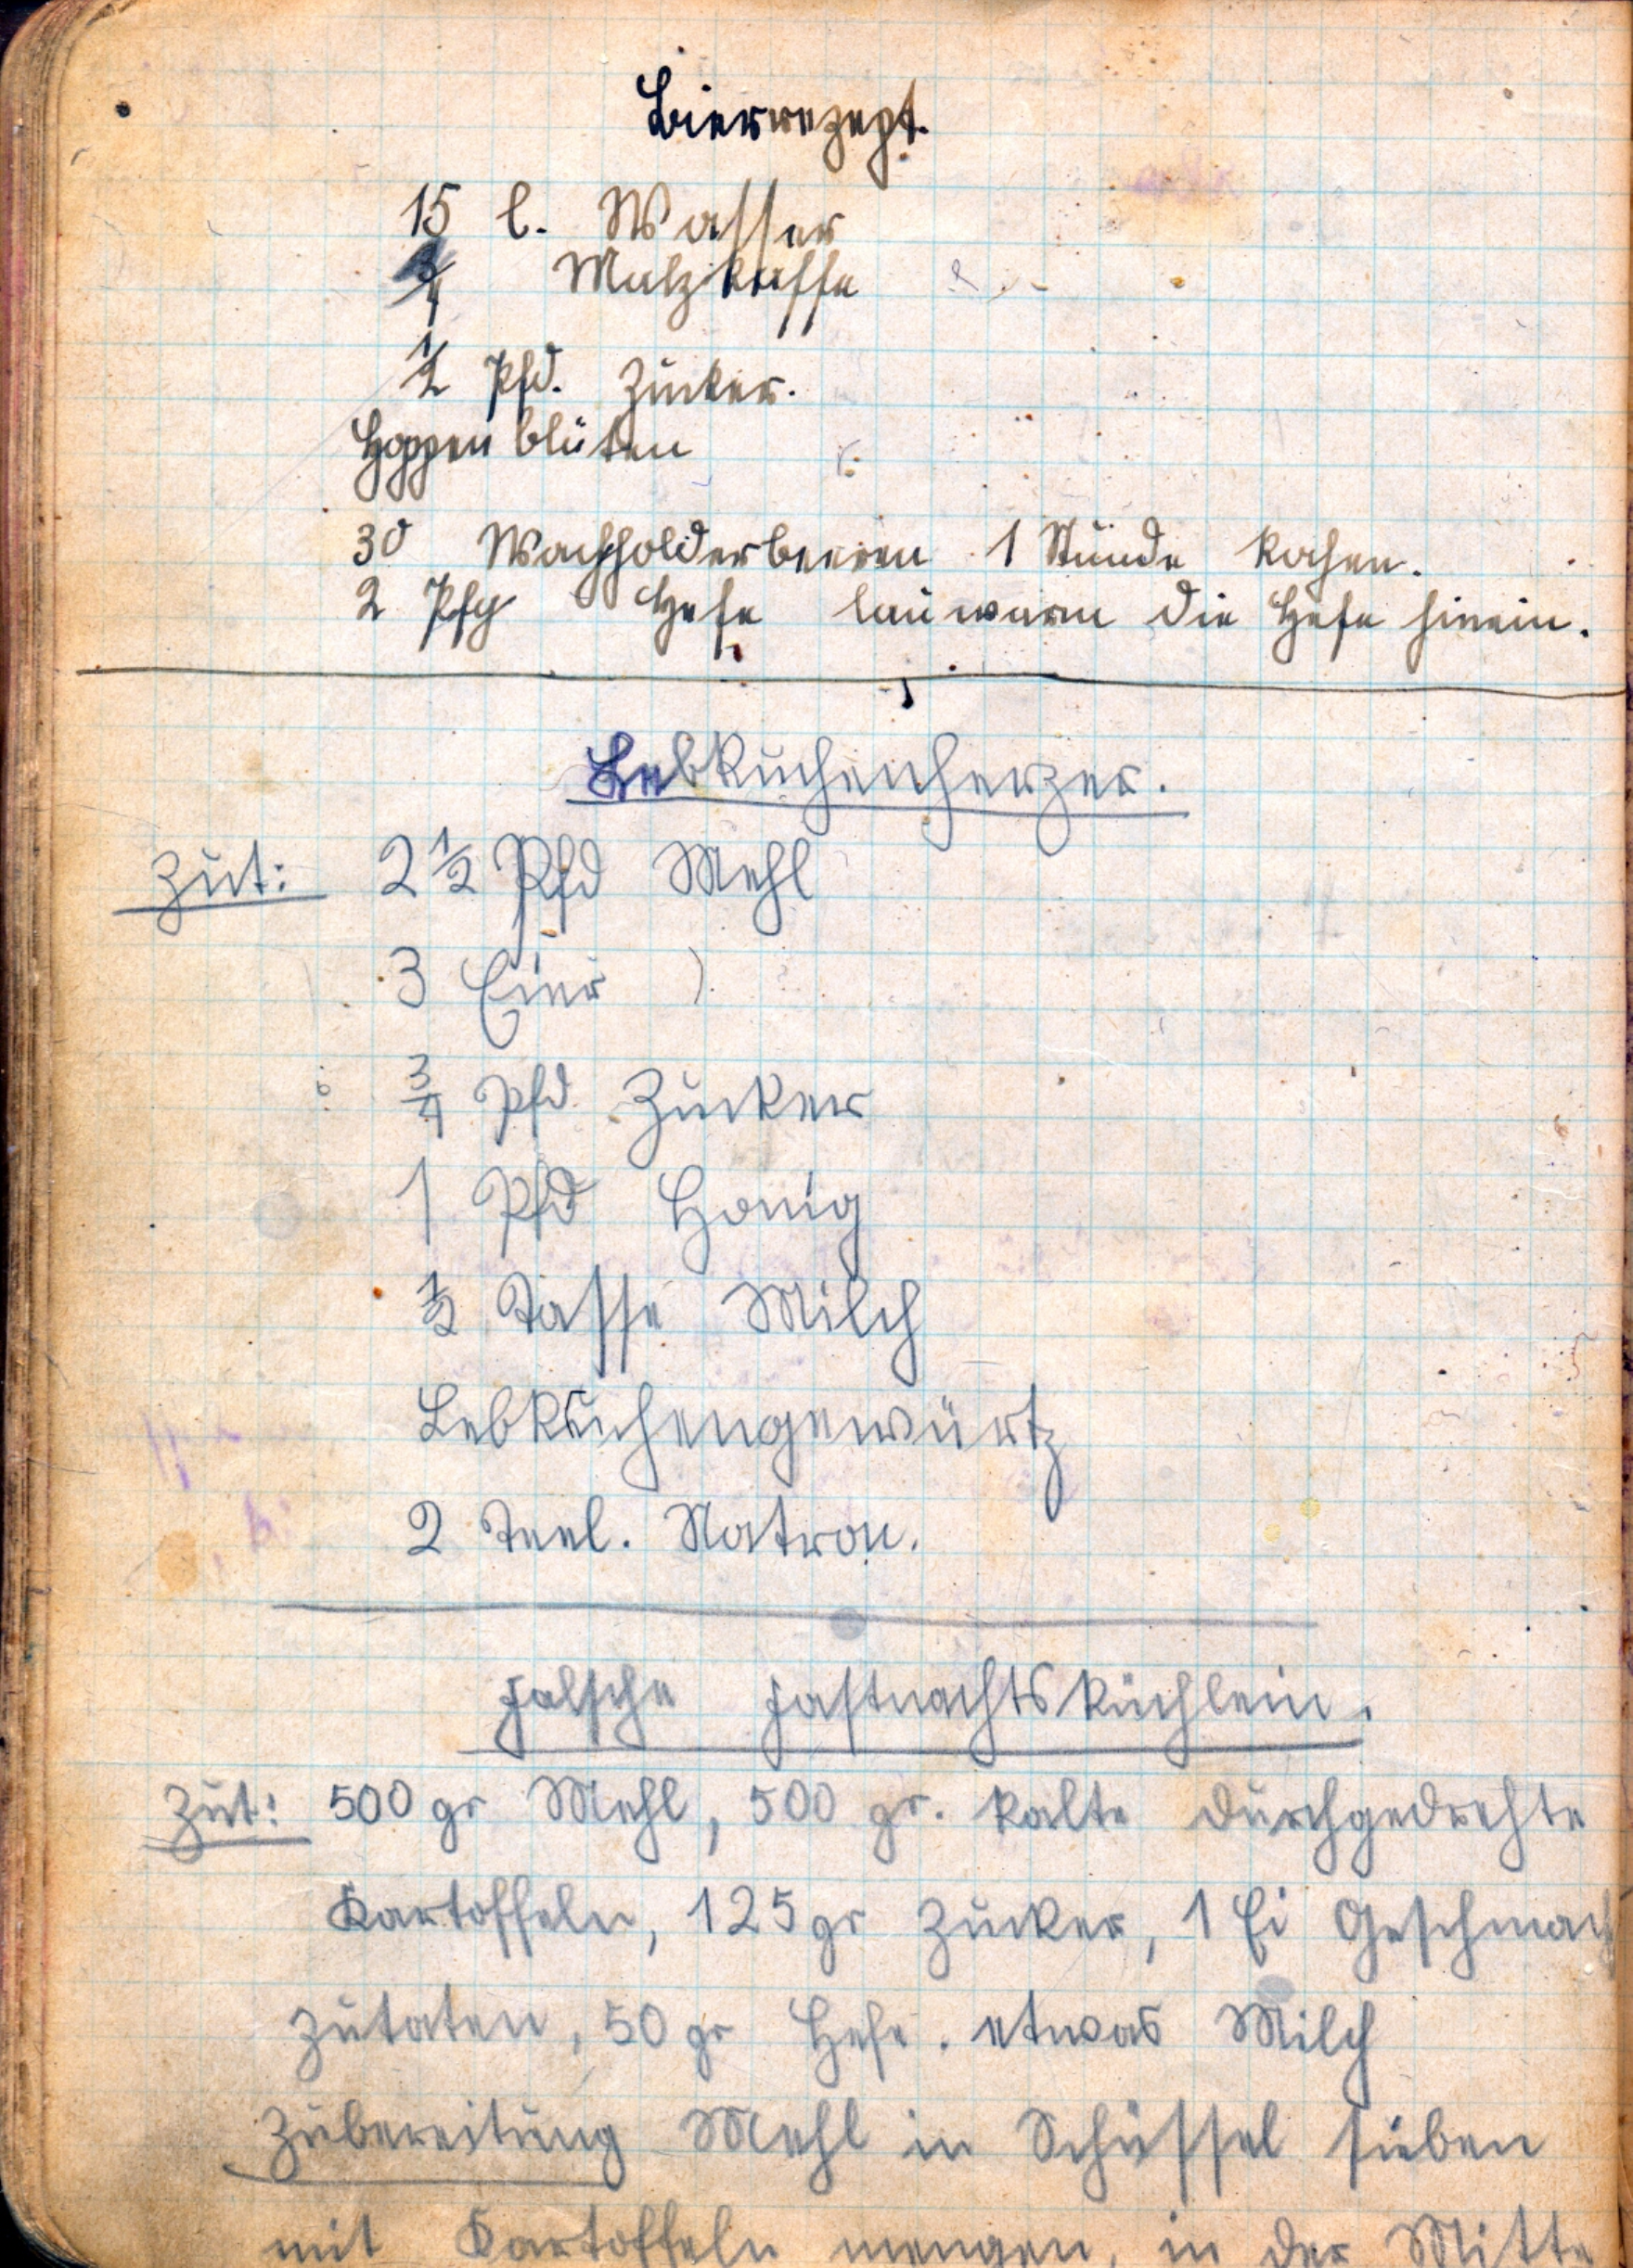 Bierrezept.
15 l. Wasser
3/4 Malzkaffe
1/2 Pfd. Zucker.
Hoppenblüten
30 Wachholderbeeren 1 Stunde kochen.
2 Pfg Hefe lauwarm die Hefe hinein.
Lebkuchenherzer.
Zut: 2 1/2 Pfd Mehl
3 Eier
3/4 Pfd. Zucker
1 Pfd Honig
1/2 Tasse Milch
Lebkuchengewürtz
2 Teel. Natron.
Falsche Fastnachtsküchlein.
Zut: 500 gr Mehl, 500 gr. kalte durchgedrehte
Kartoffeln, 125 gr Zucker, 1 Ei Geschmack
zutaten, 50 gr Hefe. etwas Milch
Zubereitung Mehl in Schüssel sieben
mit Kartoffeln mengen, in der Mitte